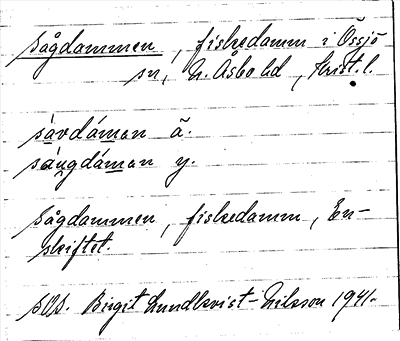 Sågdammen, fiskedamm i Össjö
sn, N. Åsbo hd, Krist. l.
såvdámen ä.
sáugdámen y.
Sågdammen, fiskedamm, En-
skiftet.
SOS. Birgit Lundkvist-Nilsson 1941.